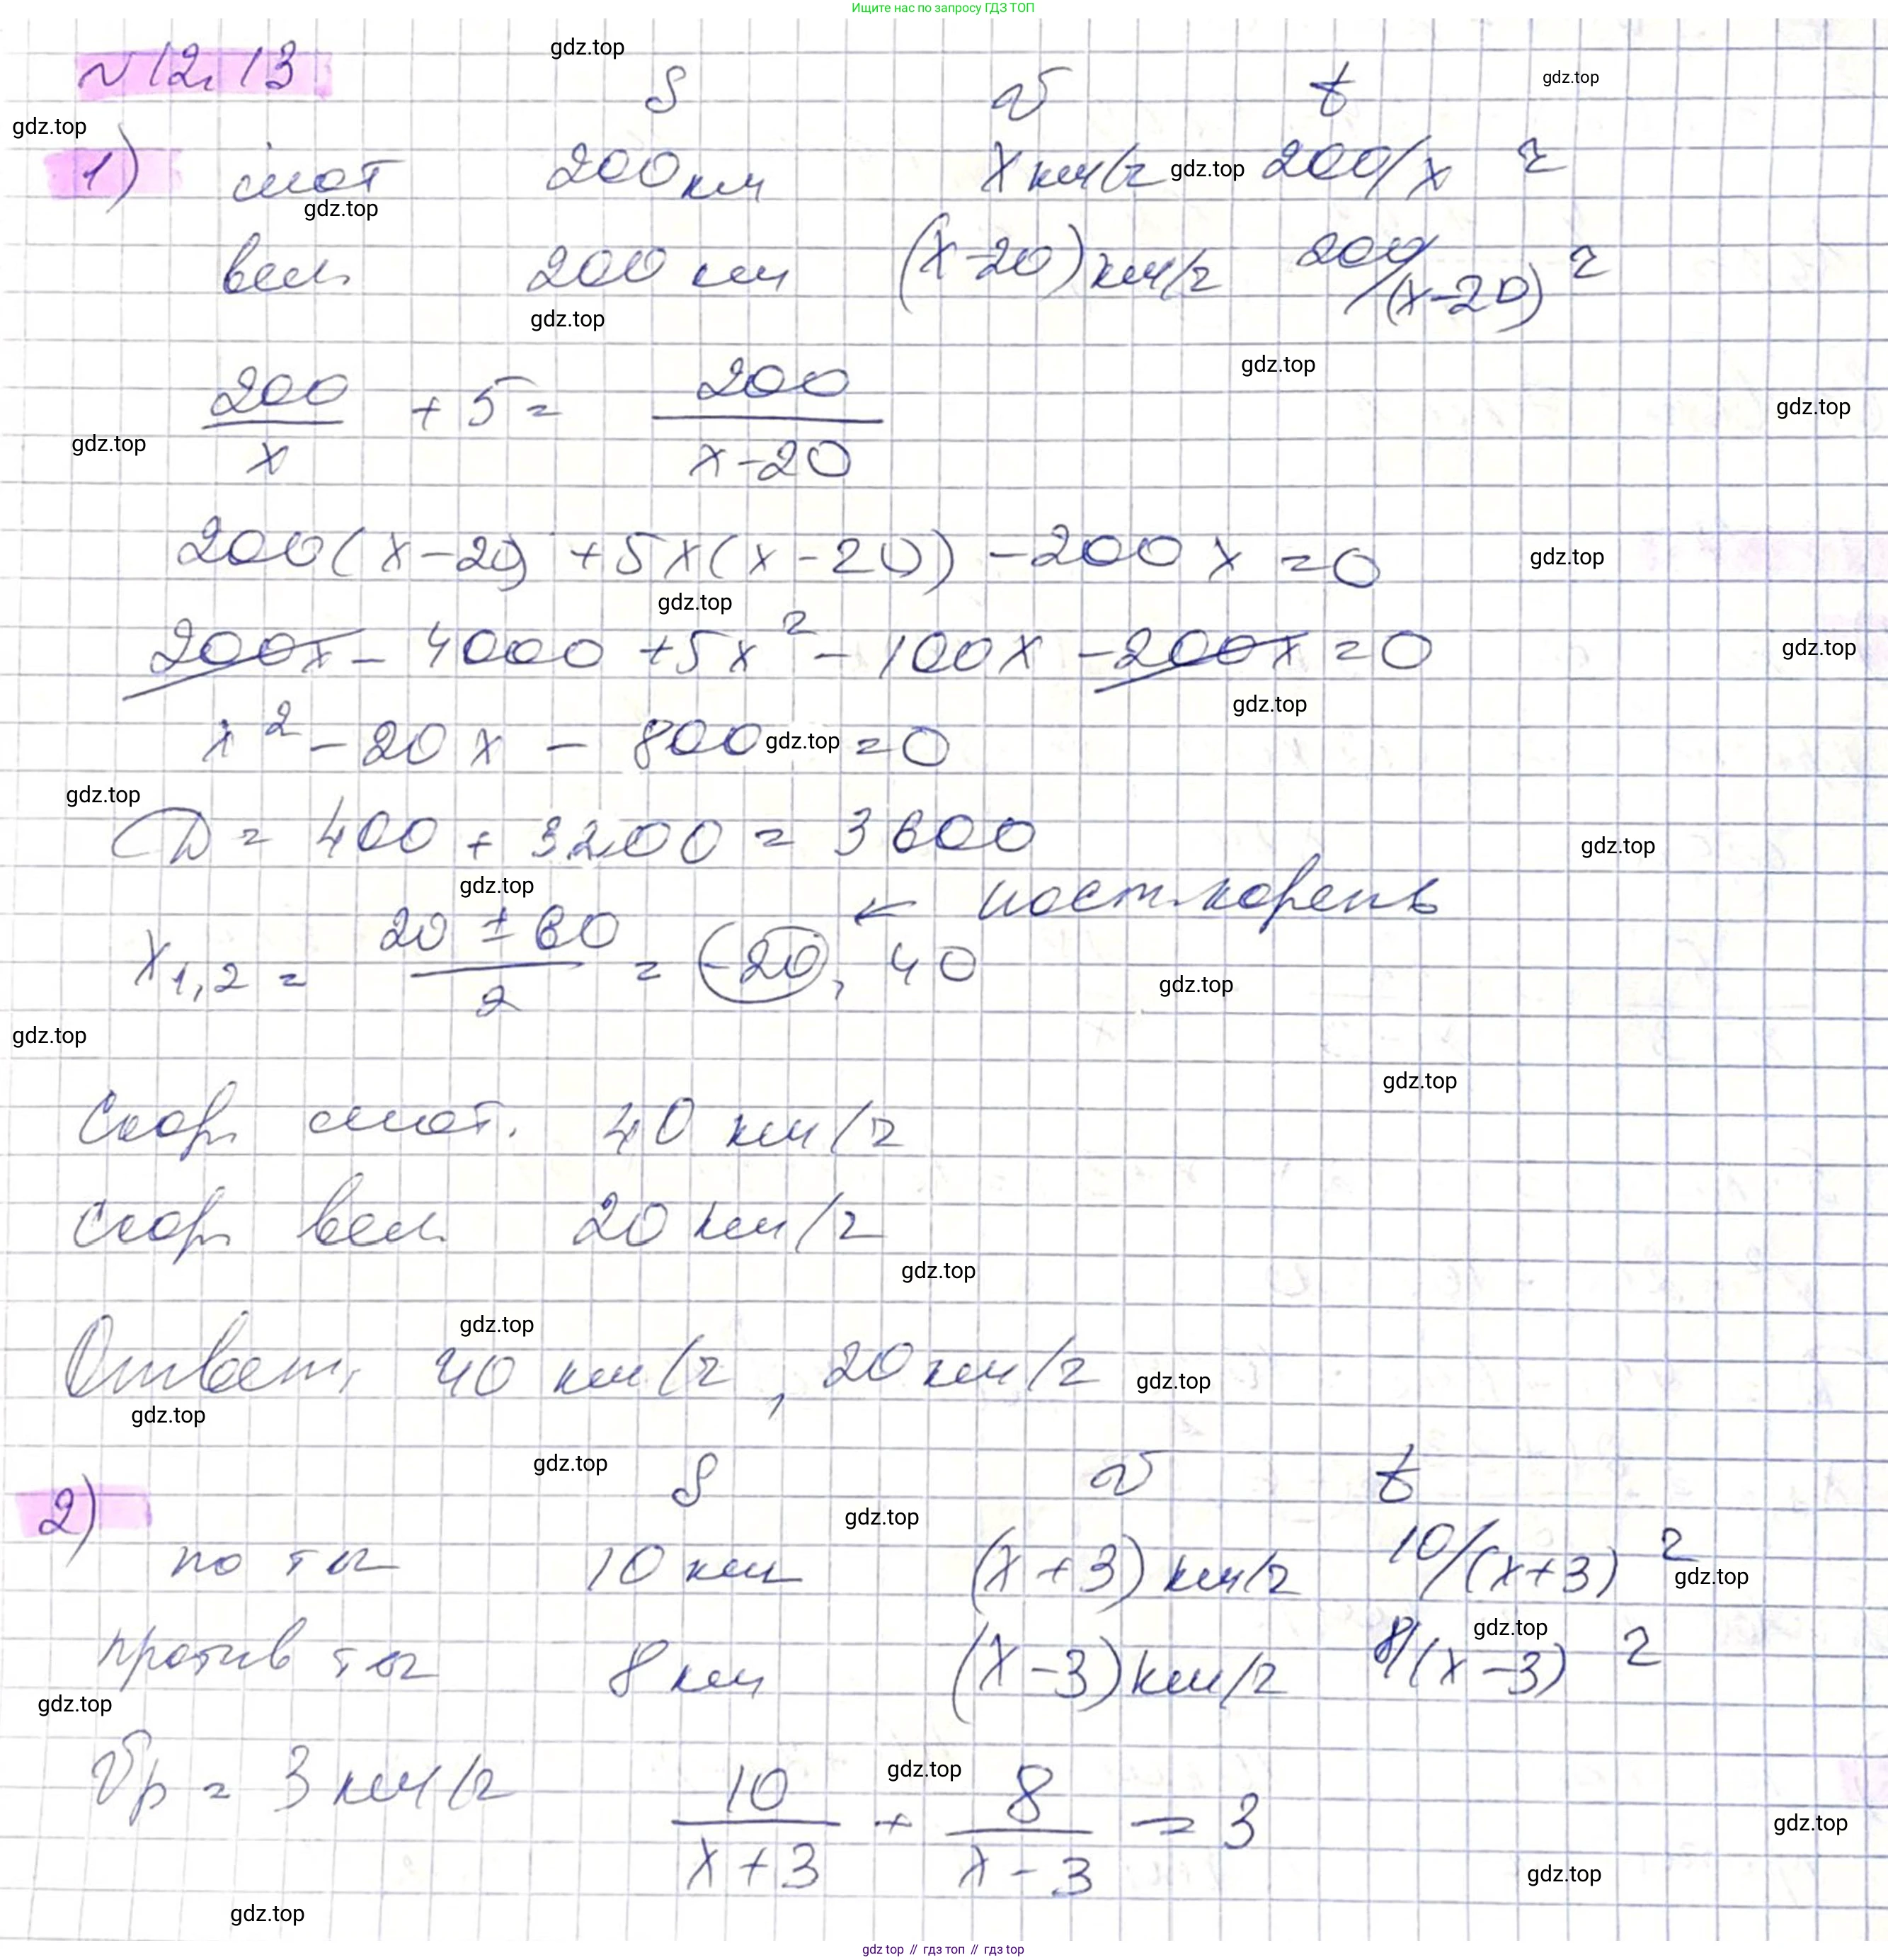 Ищите нас по запросу ГДЗ ТОП
gdz.top
N 12.13
S v t
gdz.top
gdz.top
1) мот 200 км x км/ч gdz.top 200/x ч
gdz.top
вел. 200 км (x-20) км/ч 200/(x-20) ч
gdz.top
gdz.top
200/x + 5 = 200/(x-20)
gdz.top
gdz.top
200(x-20) + 5x(x-20) - 200x = 0
gdz.top
gdz.top
200x - 4000 + 5x² - 100x - 200x = 0
gdz.top
gdz.top
x² - 20x - 800 gdz.top = 0
gdz.top
D = 400 + 3200 = 3600
gdz.top
gdz.top
← пост. корень
x1,2 = (20 ± 60)/2 = -20, 40
gdz.top
gdz.top
gdz.top
Скор. мот. 40 км/ч
Скор. вел. 20 км/ч
gdz.top
gdz.top
Ответ: 40 км/ч, 20 км/ч
gdz.top
gdz.top
gdz.top
S v t
2)
gdz.top
по теч 10 км (x+3) км/ч 10/(x+3) ч
gdz.top
gdz.top
против теч 8 км (x-3) км/ч 8/(x-3) ч
gdz.top
vр = 3 км/ч 10/(x+3) + 8/(x-3) = 3
gdz.top
gdz.top
gdz.top
gdz.top
gdz.top // гдз топ // gdz top